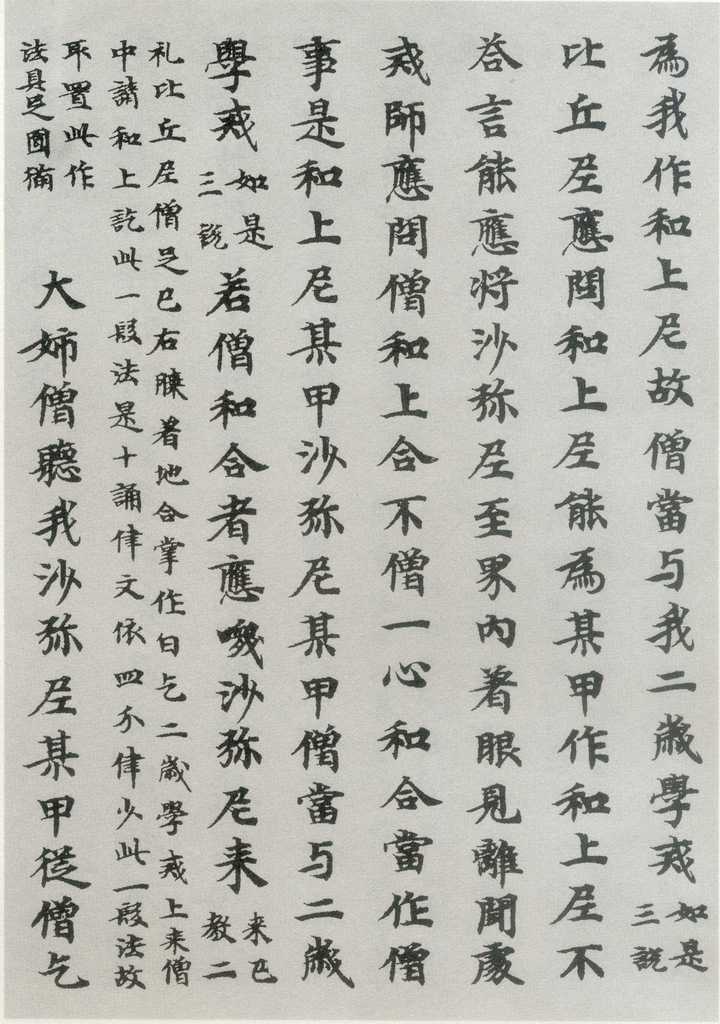 為我作和上尼故僧當与我二歲學戒如是
三說
比丘尼應問和上尼能為某甲作和上尼不
答言能應將沙弥尼至界內著眼見離聞處
戒師應問僧和上合不僧一心和合當作僧
事是和上尼某甲沙弥尼某甲僧當与二歲
學戒如是
三說若僧和合者應喚沙弥尼来来已
教二
礼比丘尼僧足已右膝著地合掌作白乞二歲學戒上来僧
中請和上訖此一段法是十誦律文依四分律少此一段法故
取置此作
法具足圓滿
大姉僧聽我沙弥尼某甲從僧乞